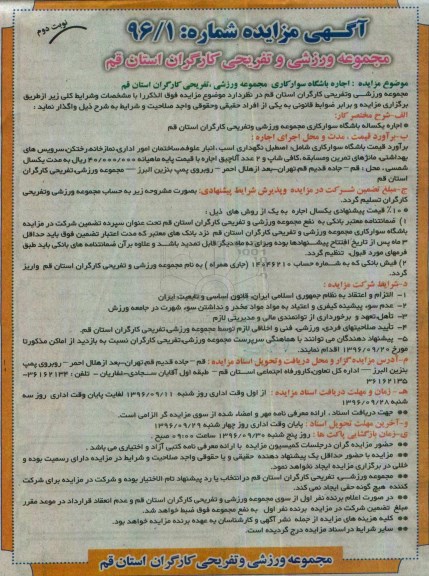 آگهی مزایده شماره: ۹۶/۱
نوبت دوم
مجموعه ورزشی و تفریحی کارگران استان قم
موضوع مزایده : اجاره باشگاه سوارکاری مجموعه ورزشی ،تفریحی کارگران استان قم
مجموعه ورزشـی وتفریحی کارگران استان قم در نظردارد موضوع مزایده فوق الذکررا با مشخصات وشرایط کلی زیر ازطریق
برگزاری مزایده و برابر ضوابط قانونی به یکی از افراد حقیقی وحقوقی واجد صلاحیت و شرایط به شرح ذیل واگذار نماید :
الف-شرح مختصر کار:
اجاره یکساله باشگاه سوارکاری مجموعه ورزشی وتفریحی کارگران استان قم
ب-برآورد قیمت ، مدت و محل اجرای اجاره :
برآورد قیمت باشگاه سوارکاری شامل: اصطبل نگهداری اسب ،انبار علوفه،ساختمان امور اداری،نمازخانه،رختکن،سرویس های
بهداشتی، مانژهای تمرین ومسابقه ،کافی شاپ و ۲ عدد آلاچیق اجاره با قیمت پایه ماهیانه ۴۰/۰۰۰/۰۰۰ ریال به مدت یکسال
شمسی ، محل : قم - جاده قدیم قم تهران-بعد ازهلال احمر - روبروی پمپ بنزین البرز - مجموعه ورزشی،تفریحی کارگران
استان قم
ج-مبلغ تضمین شـرکت در مزایده وپذیرش شرایط پیشنهادی: بصورت مشروحه زیر به حساب مجموعه ورزشی وتفریحی
کارگران استان تسلیم گردد.
۱۰٪ قیمت پیشنهادی یکسال اجاره به یک از روش های ذیل :
۱) ضمانتنامه معتبر بانکی به نفع مجموعه ورزشی و تفریحی کارگران استان قم تحت عنوان سپرده تضمین شرکت در مزایده
باشگاه سوارکاری مجموعه ورزشی و تفریحی کارگران استان قم نزد بانک های معتبر که مدت اعتبار تضمین فوق باید حداقل
۳ ماه پس از تاریخ افتتاح پیشـنهادها بوده وبرای سه ماه دیگر قابل تمدید باشـد و علاوه برآن ضمانتنامه های بانکی باید طبق
فرمهای مورد قبول تنظیم گردد.
۲) فیش بانکی که به شـماره حساب ۱۴۰۴۶۲۱۰ (جاری همراه ) به نام مجموعه ورزشی و تفریحی کارگران استان قم واریز
گردد.
د-شرایط شرکت در مزایده :
۱- التزام و اعتقاد به نظام جمهوری اسلامی ایران، قانون اساسی و تابعیت ایران
۲- عدم سوء پیشینه کیفری و اعتیاد به مواد مواد مخدر و نداشتن سوء شهرت در جامعه ورزش
۳- تأهل،تعهد و برخورداری از توانمندی مالی و مدیریتی لازم
۴- تأیید صلاحیتهای فردی، ورزشی، فنی و اخلاقی لازم توسط مجموعه ورزشی،تفریحی کارگران استان قم.
۵- پیشنهاد دهندگان می توانند با هماهنگی سرپرست مجموعه ورزشی،تفریحی کارگران نسبت به بازدید از اماکن مذکورتا
مورخ ۱۳۹۶/۰۹/۲۰ اقدام نمایند.
م-آدرس مزایده گزار و محل دریافت وتحویل اسناد مزایده : قم - جاده قدیم قم تهران-بعد ازهلال احمر - روبروی پمپ
بنزین البرز — اداره کل تعاون،کارورفاه اجتماعی اسـتان قم - طبقه اول آقایان سجادی-غفاریان - تلفن : ۳۶۱۶۲۱۳۴-
۳۶۱۶۲۱۳۵
هـ - زمان و مهلت دریافت اسناد مزایده : از اول وقت اداری روز شنبه ۱۳۹۶/۰۹/۱۱ لغایت پایان وقت اداری روز سه
شنبه ۱۳۹۶/۰۹/۲۸
جهت دریافت اسناد ، ارائه معرفی نامه مهر و امضاء شده از سوی مزایده گر الزامی است.
و-آخرین مهلت تحویل اسناد : پایان وقت اداری روز چهار شنبه ۱۳۹۶/۰۹/۲۹
ی-زمان بازگشایی پاکت ها : روز پنج شنبه ۱۳۹۶/۰۹/۳۰ ساعت ۰۹:۰۰ صبح
** حضور مزایده گران درجلسات کمیسیون مزایده با ارائه معرفی نامه کتبی آزاد و اختیاری می باشد .
** مزایده با حضور حداقل یک پیشنهاد دهنده حقیقی و یا حقوقی واجد صلاحیت و شرایط در مزایده دارای رسمیت بوده و
خللی در برگزاری مزایده ایجاد نخواهد نمود.
** مجموعه ورزشـی، تفریحی کارگران استان قم درانتخاب یا رد پیشنهاد تام الاختیار بوده و شرکت در مزایده برای شرکت
کننده هیچ گونه حقی ایجاد نمی کند.
** در صورت اعلام برنده نفر اول از سوی مجموعه ورزشی و تفریحی کارگران استان قم و عدم انعقاد قرارداد در موعد مقرر
مبلغ تضمین شرکت در مزایده برنده نفر اول به نفع مجموعه فوق ضبط خواهد شد.
** کلیه هزینه های مزایده از جمله نشر آگهی و کارشناسان به عهده برنده مزایده خواهد بود.
** سایر شرایط دراسناد مزایده درج گردیده است.
مجموعه ورزشی وتفریحی کارگران استان قم